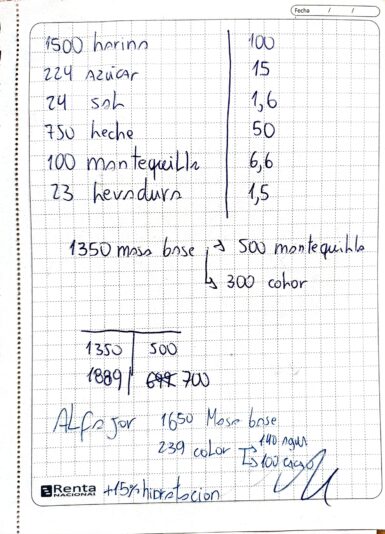 Fecha / /
1500 harina 100
224 azúcar 15
24 sal 1,6
750 leche 50
100 mantequilla 6,6
23 levadura 1,5
1350 masa base → 500 mantequilla
↳ 300 color
1350 500
1889 700
Alfajor 1650 Masa base
239 color 140 agua
↳ 100 cacao
Renta NACIONAL +15% hidratacion